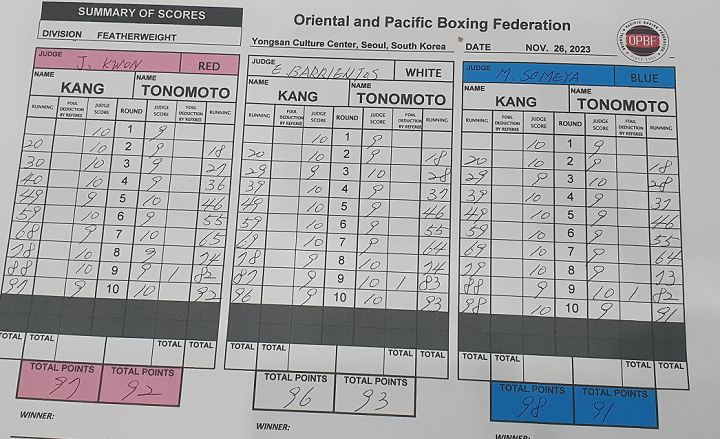 SUMMARY OF SCORES
Oriental and Pacific Boxing Federation
OPBF
DIVISION FEATHERWEIGHT
Yongsan Culture Center, Seoul, South Korea
DATE NOV. 26, 2023
JUDGE J. KWON RED
NAME KANG NAME TONOMOTO
RUNNING FOUL DEDUCTION BY REFEREE JUDGE SCORE ROUND JUDGE SCORE FOUL DEDUCTION BY REFEREE RUNNING
10 1 9
20 10 2 9 18
30 10 3 9 27
40 10 4 9 36
49 9 5 10 46
59 10 6 9 55
68 9 7 10 65
78 10 8 9 74
88 10 9 9 1 82
97 9 10 10 92
TOTAL TOTAL TOTAL TOTAL
TOTAL POINTS TOTAL POINTS
97 92
WINNER:
JUDGE E BARRIENTOS WHITE
NAME KANG NAME TONOMOTO
RUNNING FOUL DEDUCTION BY REFEREE JUDGE SCORE ROUND JUDGE SCORE FOUL DEDUCTION BY REFEREE RUNNING
10 1 9
20 10 2 9 18
29 9 3 10 28
39 10 4 9 37
49 10 5 9 46
59 10 6 9 55
69 10 7 9 64
78 9 8 10 74
87 9 9 10 1 83
96 9 10 10 93
TOTAL TOTAL TOTAL TOTAL
TOTAL POINTS TOTAL POINTS
96 93
WINNER:
JUDGE M. SOMEYA BLUE
NAME KANG NAME TONOMOTO
RUNNING FOUL DEDUCTION BY REFEREE JUDGE SCORE ROUND JUDGE SCORE FOUL DEDUCTION BY REFEREE RUNNING
10 1 9
20 10 2 9 18
29 9 3 10 28
39 10 4 9 37
49 10 5 9 46
59 10 6 9 55
69 10 7 9 64
79 10 8 9 73
88 9 9 10 1 82
98 10 10 9 91
TOTAL TOTAL TOTAL TOTAL
TOTAL POINTS TOTAL POINTS
98 91
WINNER: